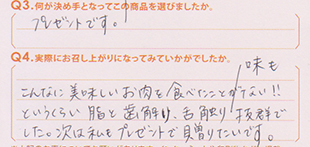 Q3.何が決め手となってこの商品を選びましたか。
プレゼントです。
Q4.実際にお召し上がりになってみていかがでしたか。
味も
こんなに美味しいお肉を食べたことがない!!
というくらい脂と歯解り、舌触り抜群で
した。次は私もプレゼントで贈りたいです。